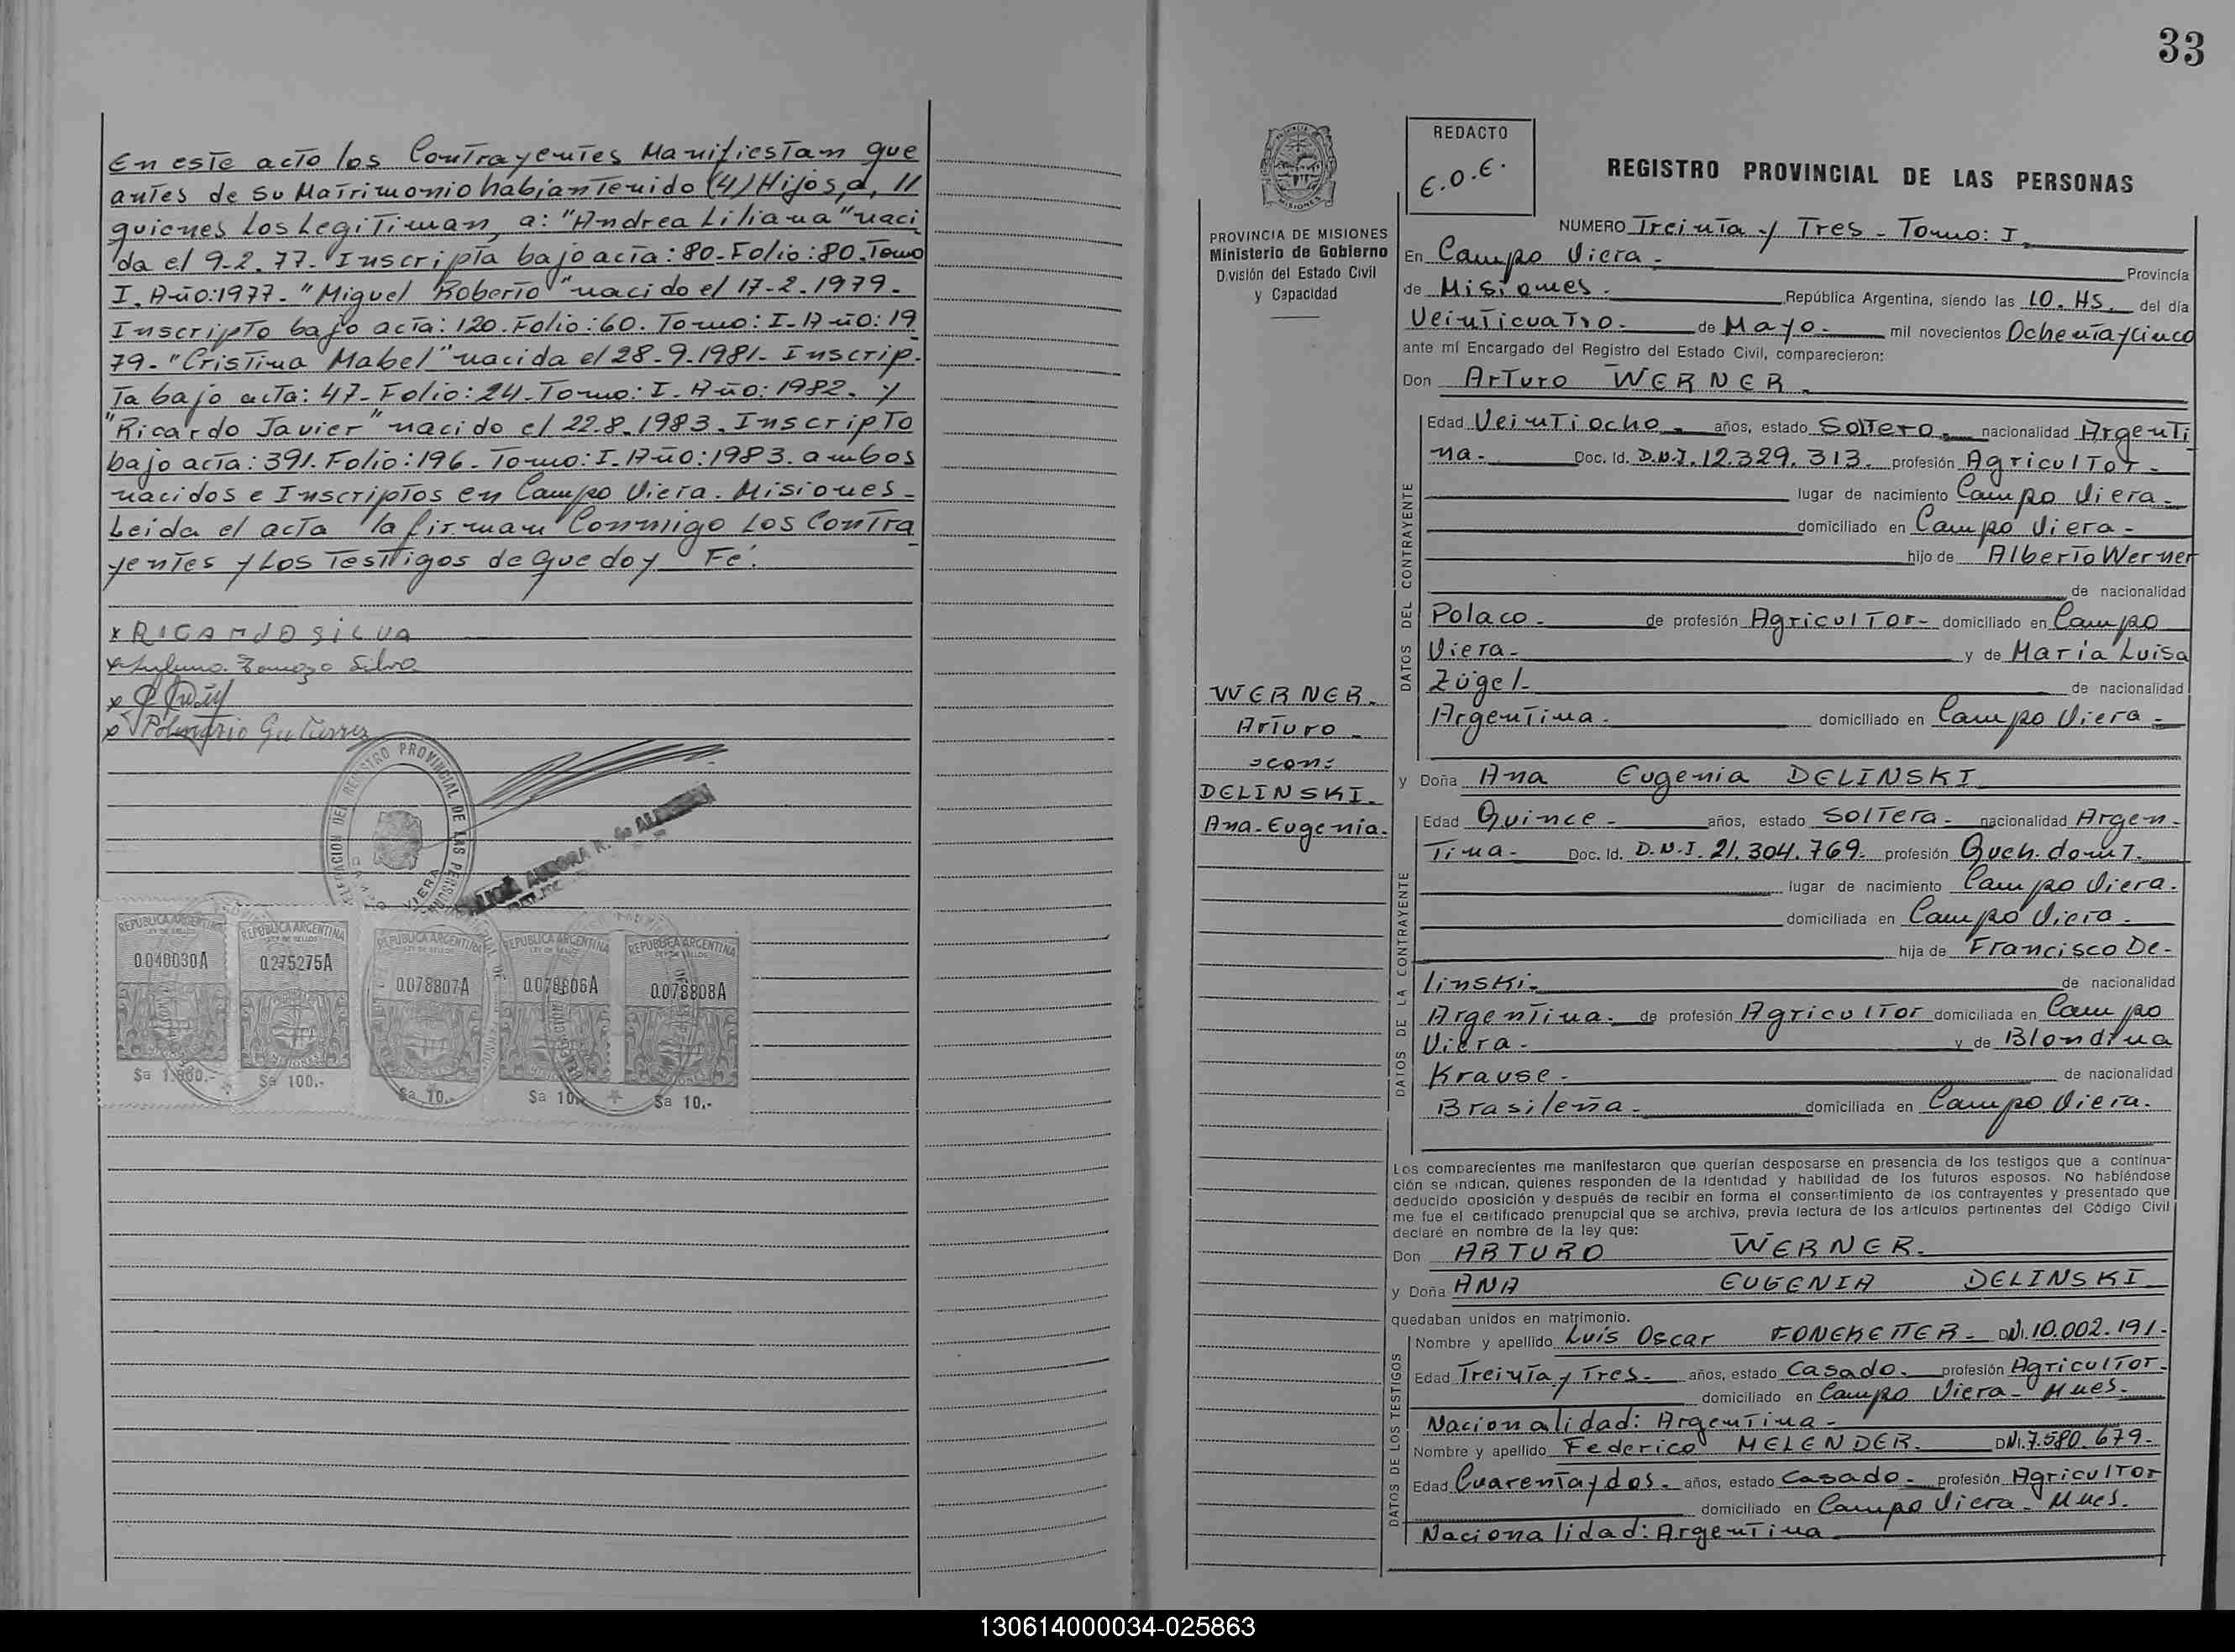 En este acto los Contrayentes Manifiestan que
antes de su Matrimonio habian tenido (4) Hijos, a, //
quienes los Legitiman, a: "Andrea Liliana" naci
da el 9-2-77. Inscripta bajo acta: 80-Folio: 80. Tomo
I. Año: 1977. "Miguel Roberto" nacido el 17-2-1979.
Inscripto bajo acta: 120. Folio: 60. Tomo: I-Año: 19
79. "Cristina Mabel" nacida el 28-9-1981. Inscrip.
ta bajo acta: 47-Folio: 24. Tomo: I. Año: 1982. y
"Ricardo Javier" nacido el 22.8.1983. Inscripto
bajo acta: 391. Folio: 196. Tomo: I. Año: 1983. ambos
nacidos e Inscriptos en Campo Viera. Misiones-
Leida el acta la firman Conmigo Los Contra
yentes y Los Testigos de que doy Fé.
x RICARDO SILVA
Silva
Gutierrez
DELEGACION DEL REGISTRO PROVINCIAL DE LAS PERSONAS
CAMPO VIERA
AURORA R. de
REPUBLICA ARGENTINA
LEY DE SELLOS
0.040030A
MISIONES
$a 1.000.-
REPUBLICA ARGENTINA
LEY DE SELLOS
0.275275A
MISIONES
$a 100.-
REPUBLICA ARGENTINA
LEY DE SELLOS
0.078807A
$a 10.-
REPUBLICA ARGENTINA
LEY DE SELLOS
0.078806A
$a 10.-
REPUBLICA ARGENTINA
LEY DE SELLOS
0.078808A
$a 10.-
33
MISIONES
PROVINCIA DE MISIONES
Ministerio de Gobierno
División del Estado Civil
y Capacidad
WERNER.
Arturo -
=con=
DELINSKI.
Ana-Eugenia.
REDACTO
E.O.E.
REGISTRO PROVINCIAL DE LAS PERSONAS
NUMERO Treinta y Tres - Tomo: I
En Campo Viera. Provincia
de Misiones. República Argentina, siendo las 10. Hs. del día
Veinticuatro. de Mayo. mil novecientos Ochenta y Cinco
ante mí Encargado del Registro del Estado Civil, comparecieron:
Don Arturo WERNER.
DATOS DEL CONTRAYENTE
Edad Veintiocho. años, estado Soltero. nacionalidad Argenti
na. Doc. Id. D.N.I. 12.329.313. profesión Agricultor.
lugar de nacimiento Campo Viera.
domiciliado en Campo Viera.
hijo de Alberto Werner
de nacionalidad
Polaco. de profesión Agricultor. domiciliado en Campo
Viera. y de María Luisa
Zügel. de nacionalidad
Argentina. domiciliado en Campo Viera.
y Doña Ana Eugenia DELINSKI
DATOS DE LA CONTRAYENTE
Edad Quince. años, estado Soltera. nacionalidad Argen-
tina. Doc. Id. D.N.I. 21.304.769. profesión Queh. domt.
lugar de nacimiento Campo Viera.
domiciliada en Campo Viera.
hija de Francisco De-
linski. de nacionalidad
Argentina. de profesión Agricultor domiciliada en Campo
Viera. y de Blondina
Krause. de nacionalidad
Brasileña. domiciliada en Campo Viera.
Los comparecientes me manifestaron que querían desposarse en presencia de los testigos que a continua-
ción se indican, quienes responden de la identidad y habilidad de los futuros esposos. No habiéndose
deducido oposición y después de recibir en forma el consentimiento de los contrayentes y presentado que
me fue el certificado prenupcial que se archiva, previa lectura de los artículos pertinentes del Código Civil
declaré en nombre de la ley que:
Don ARTURO WERNER.
y Doña ANA EUGENIA DELINSKI
quedaban unidos en matrimonio.
DATOS DE LOS TESTIGOS
Nombre y apellido Luis Oscar DNI. 10.002.191.
Edad Treinta y Tres. años, estado Casado. profesión Agricultor.
domiciliado en Campo Viera - Mnes.
Nacionalidad: Argentina.
Nombre y apellido Federico MELENDER. DNI. 7.580.679.
Edad Cuarenta y dos. años, estado Casado. profesión Agricultor
domiciliado en Campo Viera - Mnes.
Nacionalidad: Argentina
130614000034-025863